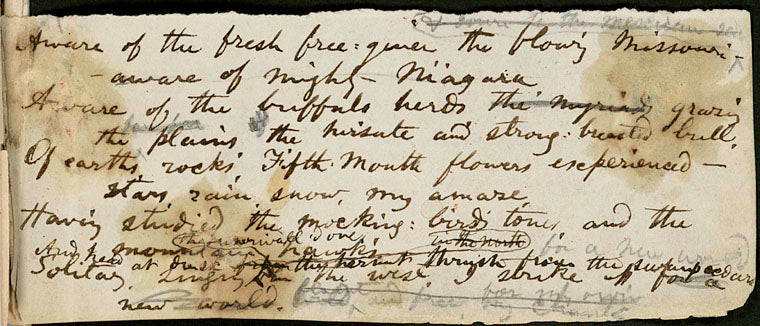 Aware of the fresh free-giver the flowing Missouri –
– aware of mighty Niagara
Aware of the buffalo herds the myriads grazing
the plains the hirsute and strong-breasted bull,
Of earths, rocks, Fifth-Month flowers experienced –
stars, rain, snow, my amaze,
Having studied the mocking-bird's tones, and the
mountain hawk's
And heard at dusk the hermit thrush from the swamp cedars
Solitary, singing in the west, I strike up for a
new world.